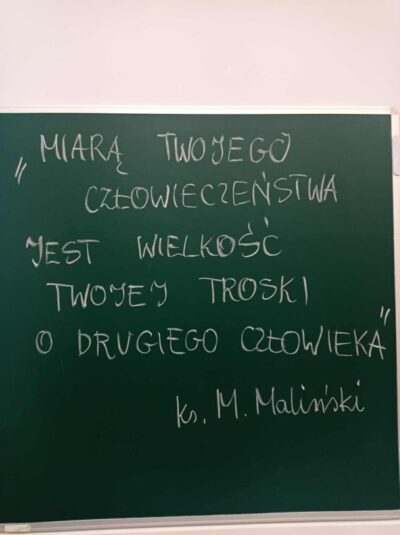 „MIARĄ TWOJEGO
CZŁOWIECZEŃSTWA
JEST WIELKOŚĆ
TWOJEJ TROSKI
O DRUGIEGO CZŁOWIEKA”
ks. M. Maliński